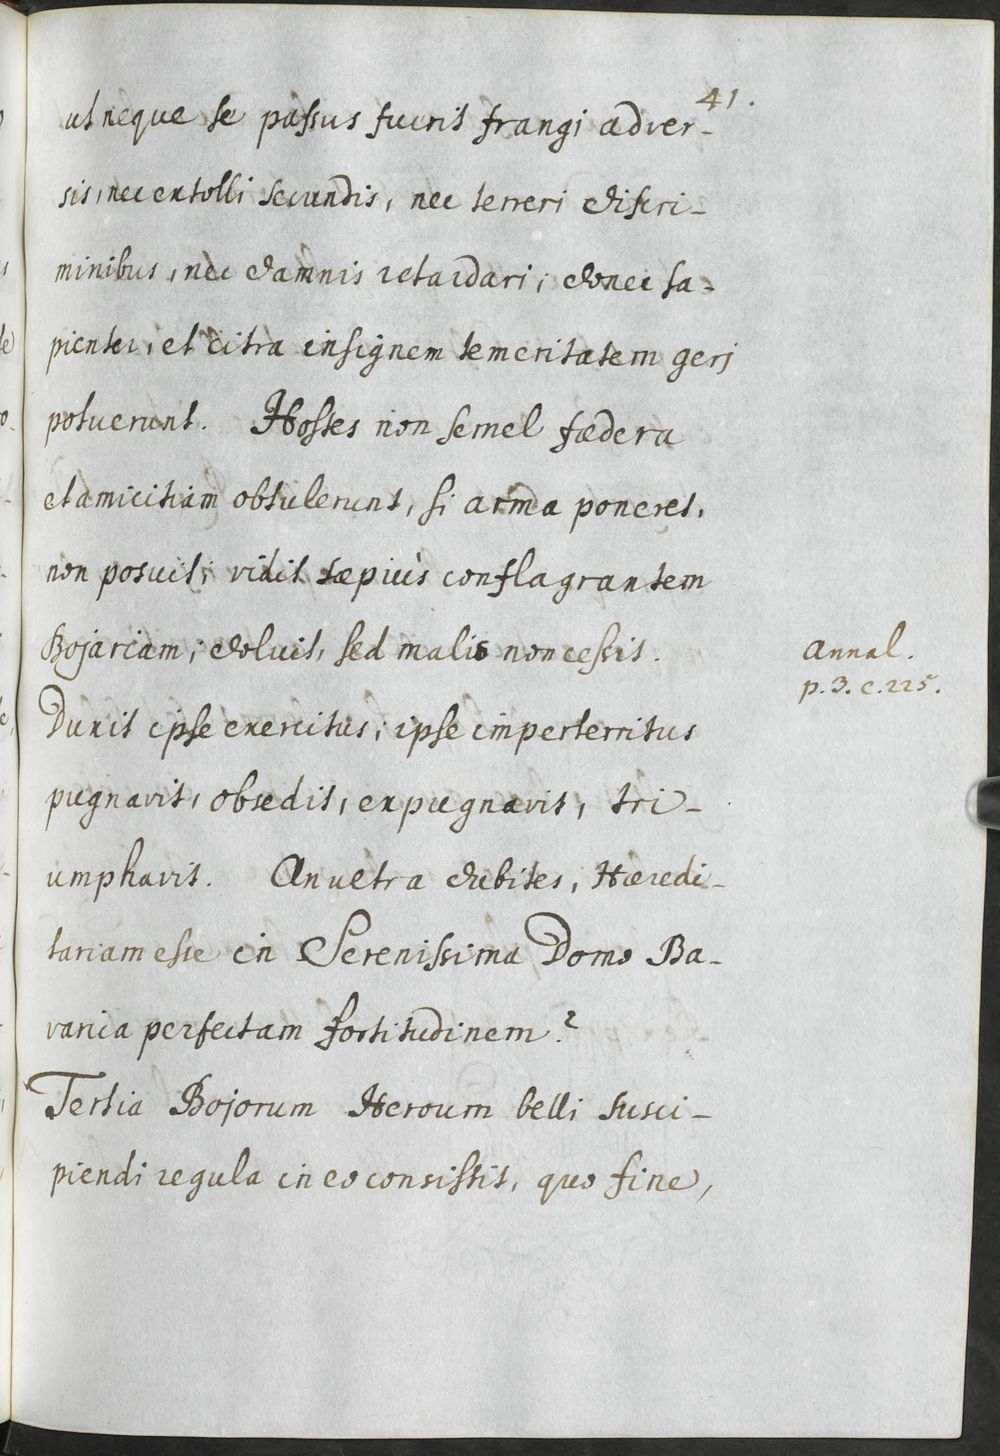 41.
ut neque se passus fuerit frangi adver-
sis, nec extolli secundis, nec terreri discri-
minibus, nec damnis retardari; donec sa-
pienter, et citra insignem temeritatem geri
potuerunt. Hostes non semel fœdera
et amicitiam obtulerunt, si arma poneret,
non posuit; vidit sæpiùs conflagrantem
Bojariam; doluit, sed malis non cessit.
Annal.
p. 3. c. 225.
Duxit ipse exercitus; ipse imperterritus
pugnavit, obsedit, expugnavit, tri-
umphavit. An vetra dubites, Hæredi-
tariam esse in Serenissima Domo Ba-
varica perfectam fortitudinem?
Tertia Bojorum Heroum belli susci-
piendi regula in eo consistit, quo fine,